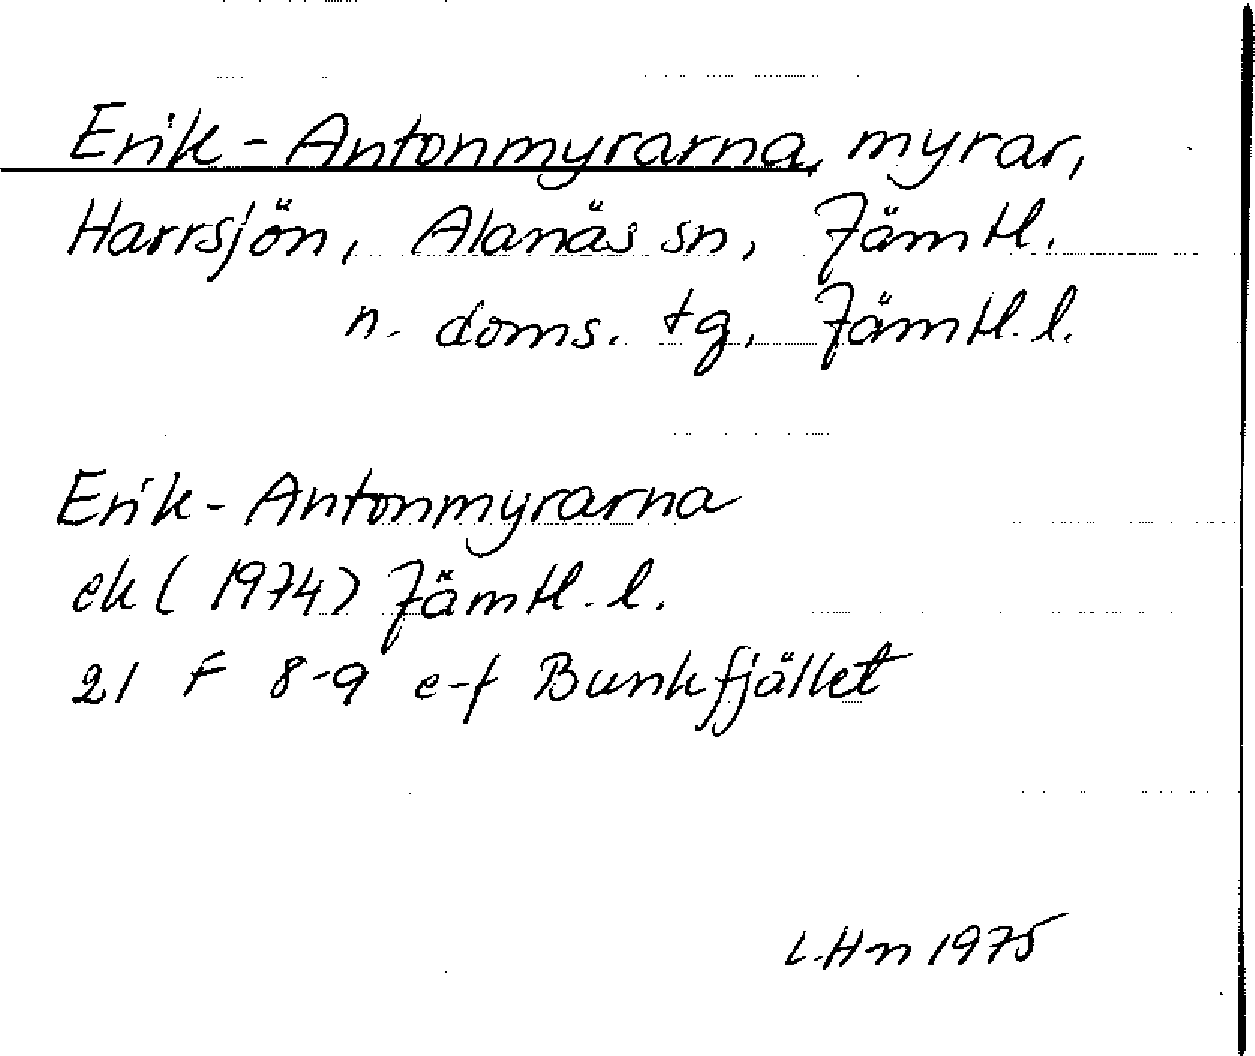 Erik-Antonmyrarna, myrar,
Harrsjön, Alanäs sn, Jämtl.
n. doms. tg, Jämtl. l.
Erik-Antonmyrarna
ek (1974) Jämtl. l.
21 F 8-9 e-f Bunkfjället
L.Hn 1975